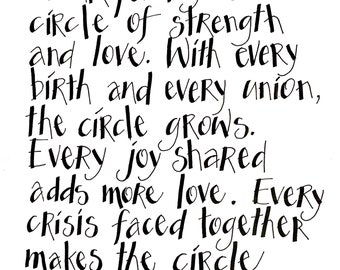 circle of strength
and love. With every
birth and every union,
the circle grows.
Every joy shared
adds more love. Every
crisis faced together
makes the circle